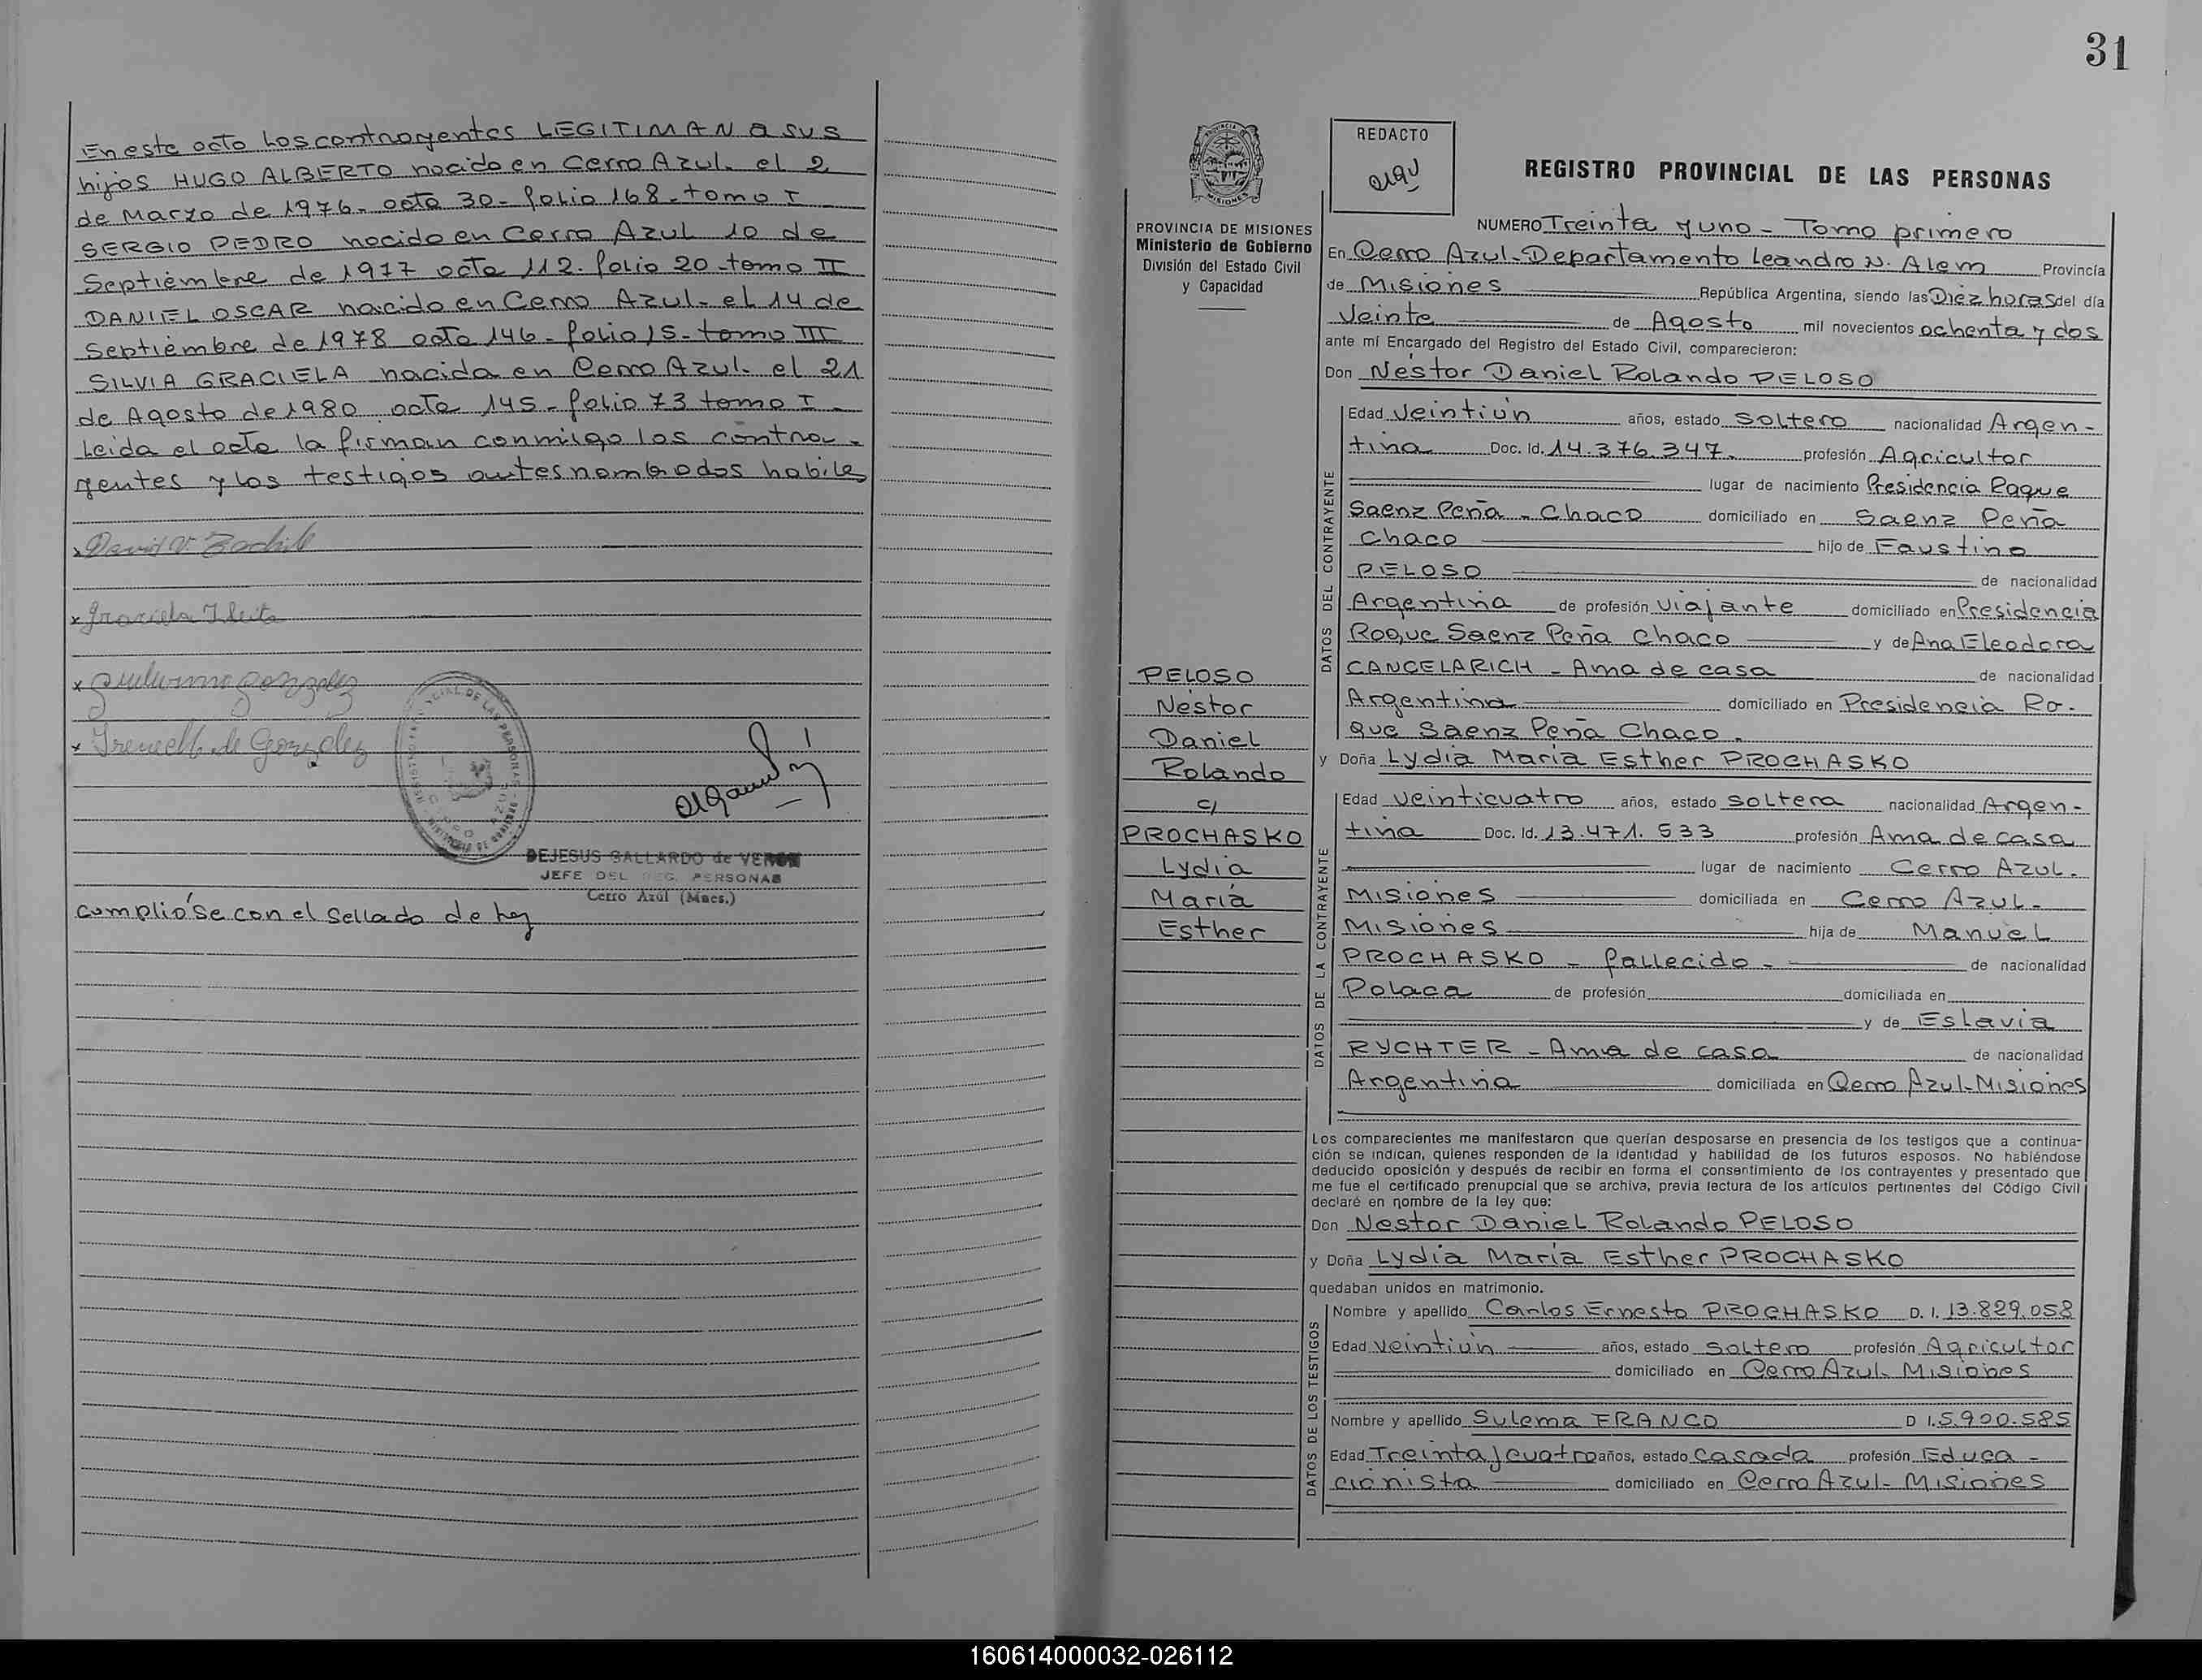 En este acto los contrayentes LEGITIMAN a sus
hijos HUGO ALBERTO nacido en Cerro Azul. el 2
de Marzo de 1976. acta 30 - folio 168 - tomo I
SERGIO PEDRO nacido en Cerro Azul 10 de
Septiembre de 1977 acta 112. folio 20 - tomo II
DANIEL OSCAR nacido en Cerro Azul - el 14 de
Septiembre de 1978 acta 146 - folio 15 - tomo III
SILVIA GRACIELA nacida en Cerro Azul. el 21
de Agosto de 1980 acta 145 - folio 73 tomo I -
Leida el acta la firman conmigo los contra -
yentes y los testigos antes nombrados habiles
x David V.
x Graciela
x Guillermo Gonzalez
x de Gonzalez
DEJESUS GALLARDO de VERON
JEFE DEL REG. PERSONAS
Cerro Azúl (Mnes.)
cumplióse con el sellado de ley
31
PROVINCIA DE MISIONES
Ministerio de Gobierno
División del Estado Civil
y Capacidad
PELOSO
Néstor
Daniel
Rolando
c/
PROCHASKO
Lydia
María
Esther
REDACTO
REGISTRO PROVINCIAL DE LAS PERSONAS
NUMERO Treinta y uno - Tomo primero
En Cerro Azul - Departamento Leandro N. Alem Provincia
de Misiones República Argentina, siendo las Diez horas del día
Veinte de Agosto mil novecientos ochenta y dos
ante mí Encargado del Registro del Estado Civil, comparecieron:
Don Néstor Daniel Rolando PELOSO
DATOS DEL CONTRAYENTE
Edad Veintiún años, estado Soltero nacionalidad Argen -
tina Doc. Id. 14.376.347. profesión Agricultor
lugar de nacimiento Presidencia Roque
Saenz Peña - Chaco domiciliado en Saenz Peña
Chaco hijo de Faustino
PELOSO de nacionalidad
Argentina de profesión Viajante domiciliado en Presidencia
Roque Saenz Peña Chaco y de Ana Eleodora
CANCELARICH - Ama de casa de nacionalidad
Argentina domiciliado en Presidencia Ro -
que Saenz Peña Chaco.
y Doña Lydia María Esther PROCHASKO
DATOS DE LA CONTRAYENTE
Edad Veinticuatro años, estado soltera nacionalidad Argen -
tina Doc. Id. 13.471.533 profesión Ama de casa
lugar de nacimiento Cerro Azul.
Misiones domiciliada en Cerro Azul -
Misiones hija de Manuel
PROCHASKO - fallecido - de nacionalidad
Polaca de profesión domiciliada en
y de Eslavia
RYCHTER - Ama de casa de nacionalidad
Argentina domiciliada en Cerro Azul - Misiones
Los comparecientes me manifestaron que querían desposarse en presencia de los testigos que a continua-
ción se indican, quienes responden de la identidad y habilidad de los futuros esposos. No habiéndose
deducido oposición y después de recibir en forma el consentimiento de los contrayentes y presentado que
me fue el certificado prenupcial que se archiva, previa lectura de los artículos pertinentes del Código Civil
declaré en nombre de la ley que:
Don Nestor Daniel Rolando PELOSO
y Doña Lydia María Esther PROCHASKO
quedaban unidos en matrimonio.
DATOS DE LOS TESTIGOS
Nombre y apellido Carlos Ernesto PROCHASKO D. I. 13.829.058
Edad Veintiún años, estado Soltero profesión Agricultor
domiciliado en Cerro Azul - Misiones
Nombre y apellido Sulema FRANCO D I. 5.900.585
Edad Treinta y cuatro años, estado Casada profesión Educa -
cionista domiciliado en Cerro Azul - Misiones
160614000032-026112